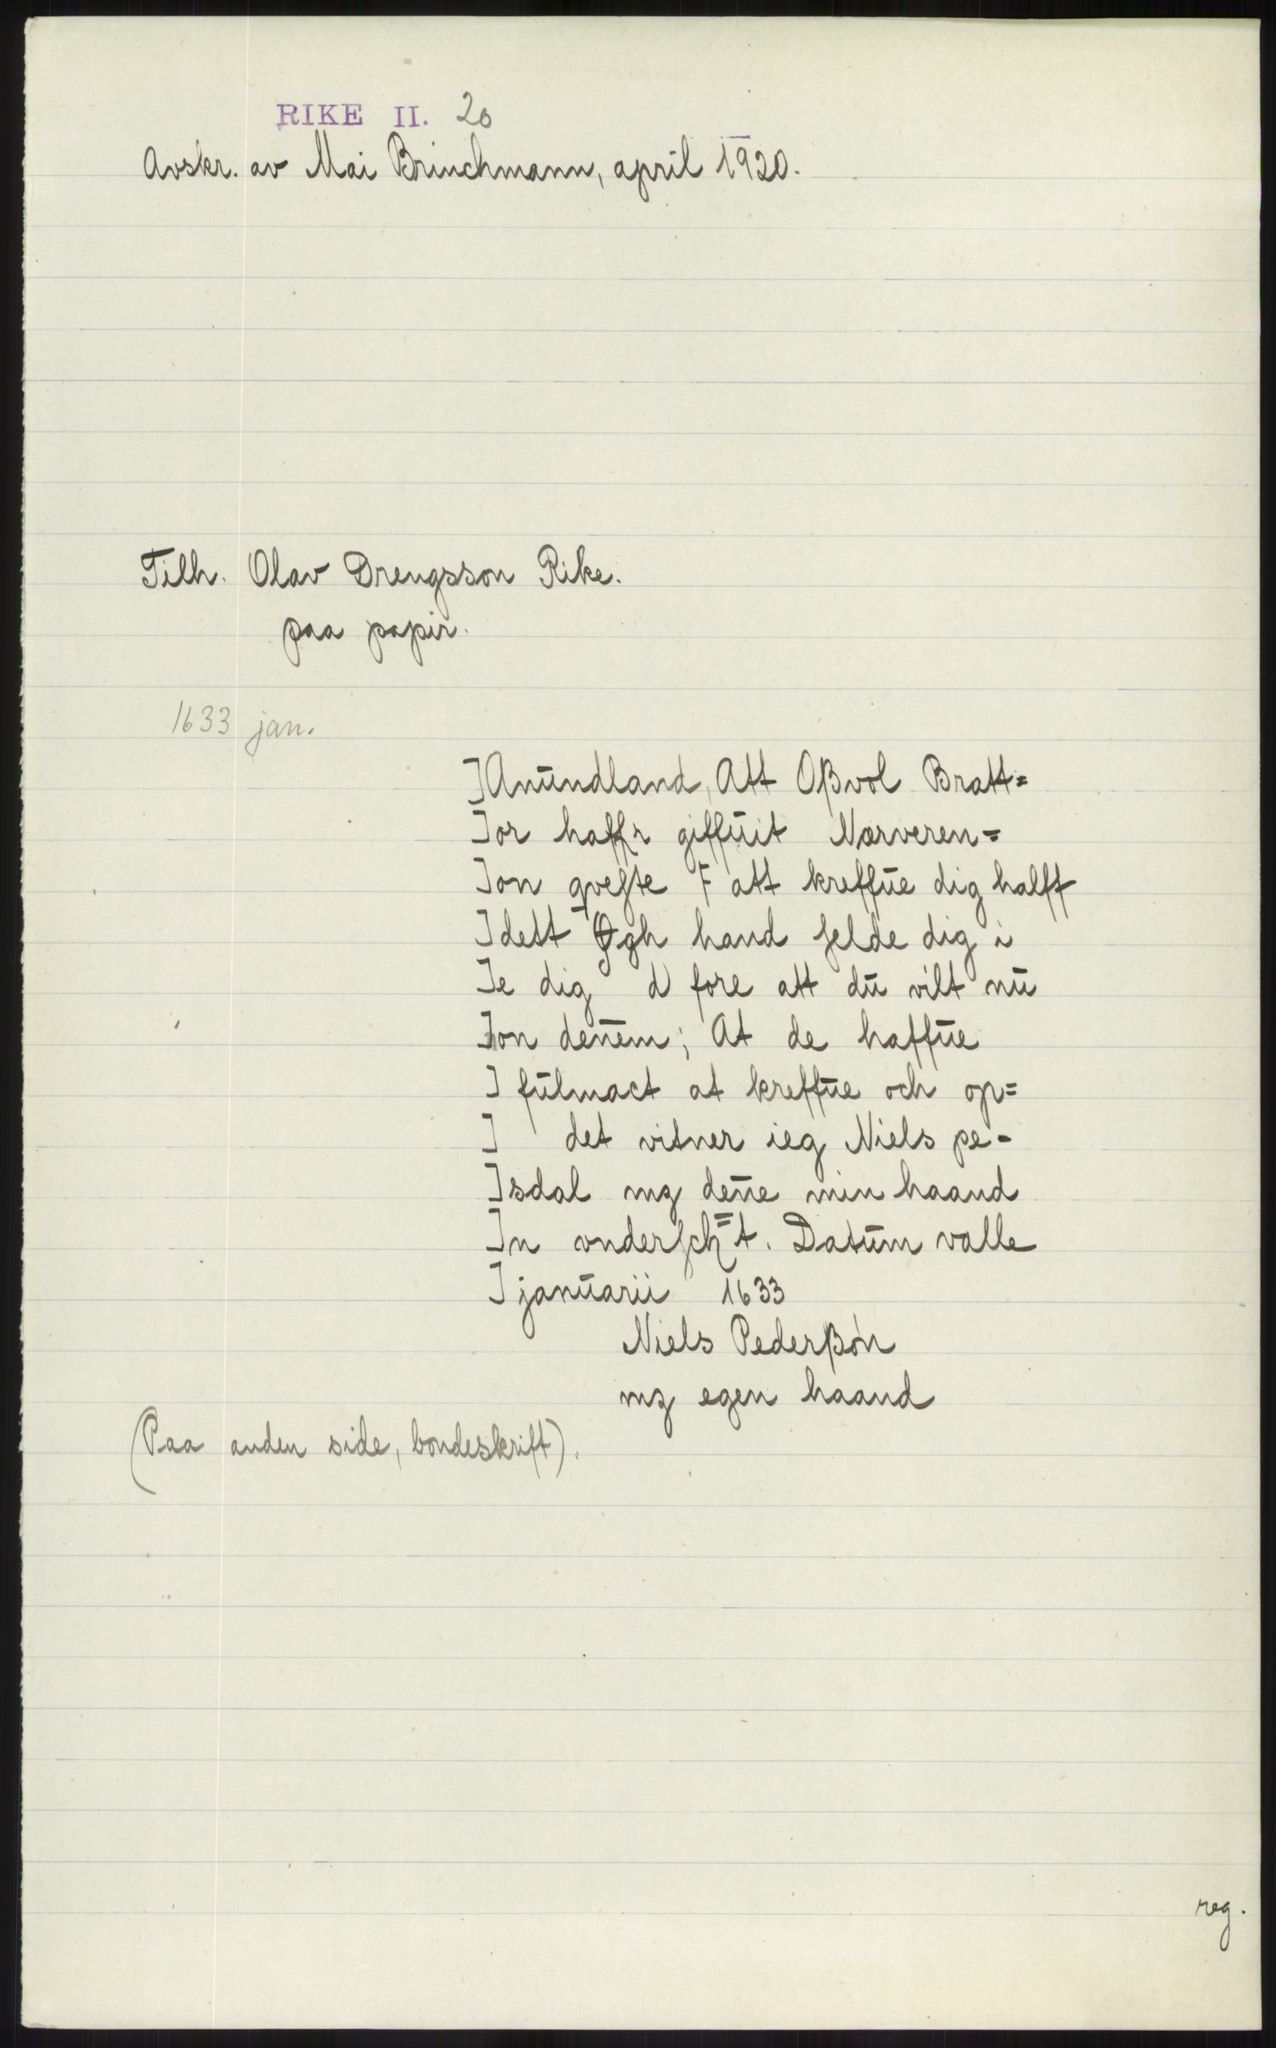 RIKE II. 20
Avskr. av Mai Brinchmann, april 1920.
Tilh. Olav Drengsson Rike.
paa papir.
1633 jan.
]Anūndland, Att Oßvol Bratt=
]or haffr giffūit Nærveren=
]on qveſte F att kreffūe dig halft
]dett Ogh hand ſelde dig i
]e dig d fore att dū vilt nū
]on denēm; At de haffūe
] fūlmact at kreffūe och op=
] det vitner ieg Niels pe-
]sdal mz deñe min haand
]n vnderſch=t. Datūm valle
] janūarii 1633
Niels Pederßøn
mz egen haand
(Paa anden side, bondeskrift).
reg.